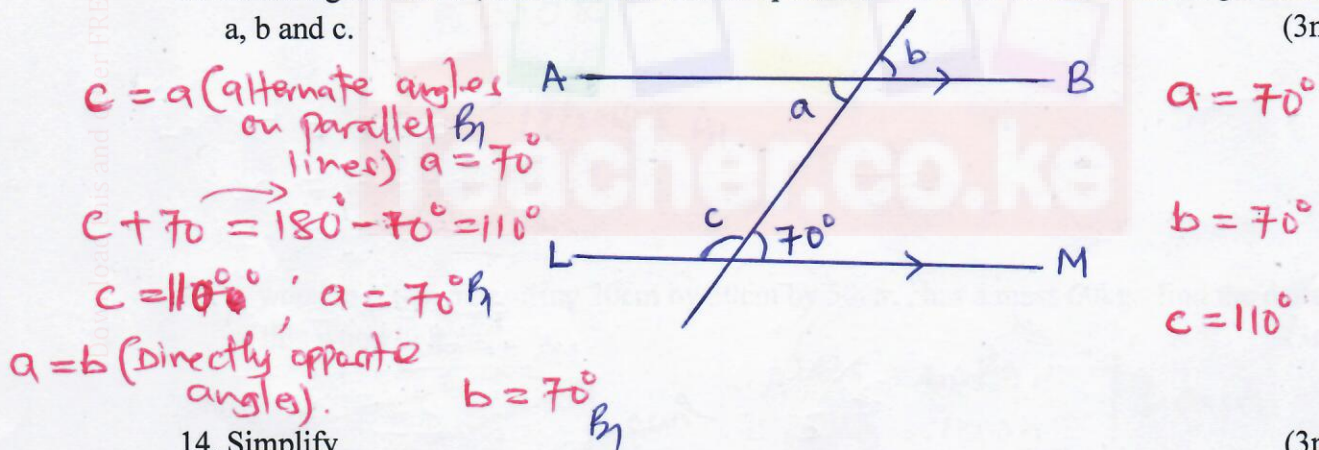 a, b and c.
(3m
c = a (alternate angles
on parallel B1
lines) a = 70°
c + 70 = 180° - 70° = 110°
c = 110° ; a = 70° B1
a = b (Directly opposite
angles).
b = 70°
B1
A
B
a
b
c
70°
L
M
a = 70°
b = 70°
c = 110°
teacher.co.ke
14. Simplify
(3m